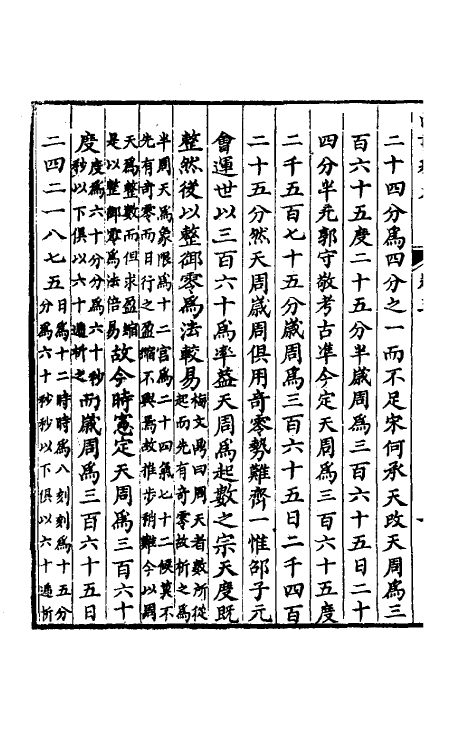 二十四分爲四分之一而不足宋何承天改天周爲三
百六十五度二十五分半歲周爲三百六十五日二十
四分半元郭守敬考古準今定天周爲三百六十五度
二千五百七十五分歲周爲三百六十五日二千四百
二十五分然天周歲周俱用奇零勢難齊一惟邵子元
會運世以三百六十爲率益天周爲起數之宗天度既
整然後以整御零爲法較易梅文鼎曰周天者數所從
起而先有奇零故析之爲
半周天爲象限爲十二宫爲二十四氣七十二候莫不
先有奇零而日行之盈縮不與焉故推步稍難今以周
天爲整數而但求盈縮
是以整御零爲法倍易故今時憲定天周爲三百六十
度度爲六十分分爲六十秒
秒以下俱以六十遞析之而歲周爲三百六十五日
二四二一八七五日爲十二時時爲八刻刻爲十五分
分爲六十秒秒以下俱以六十遞析